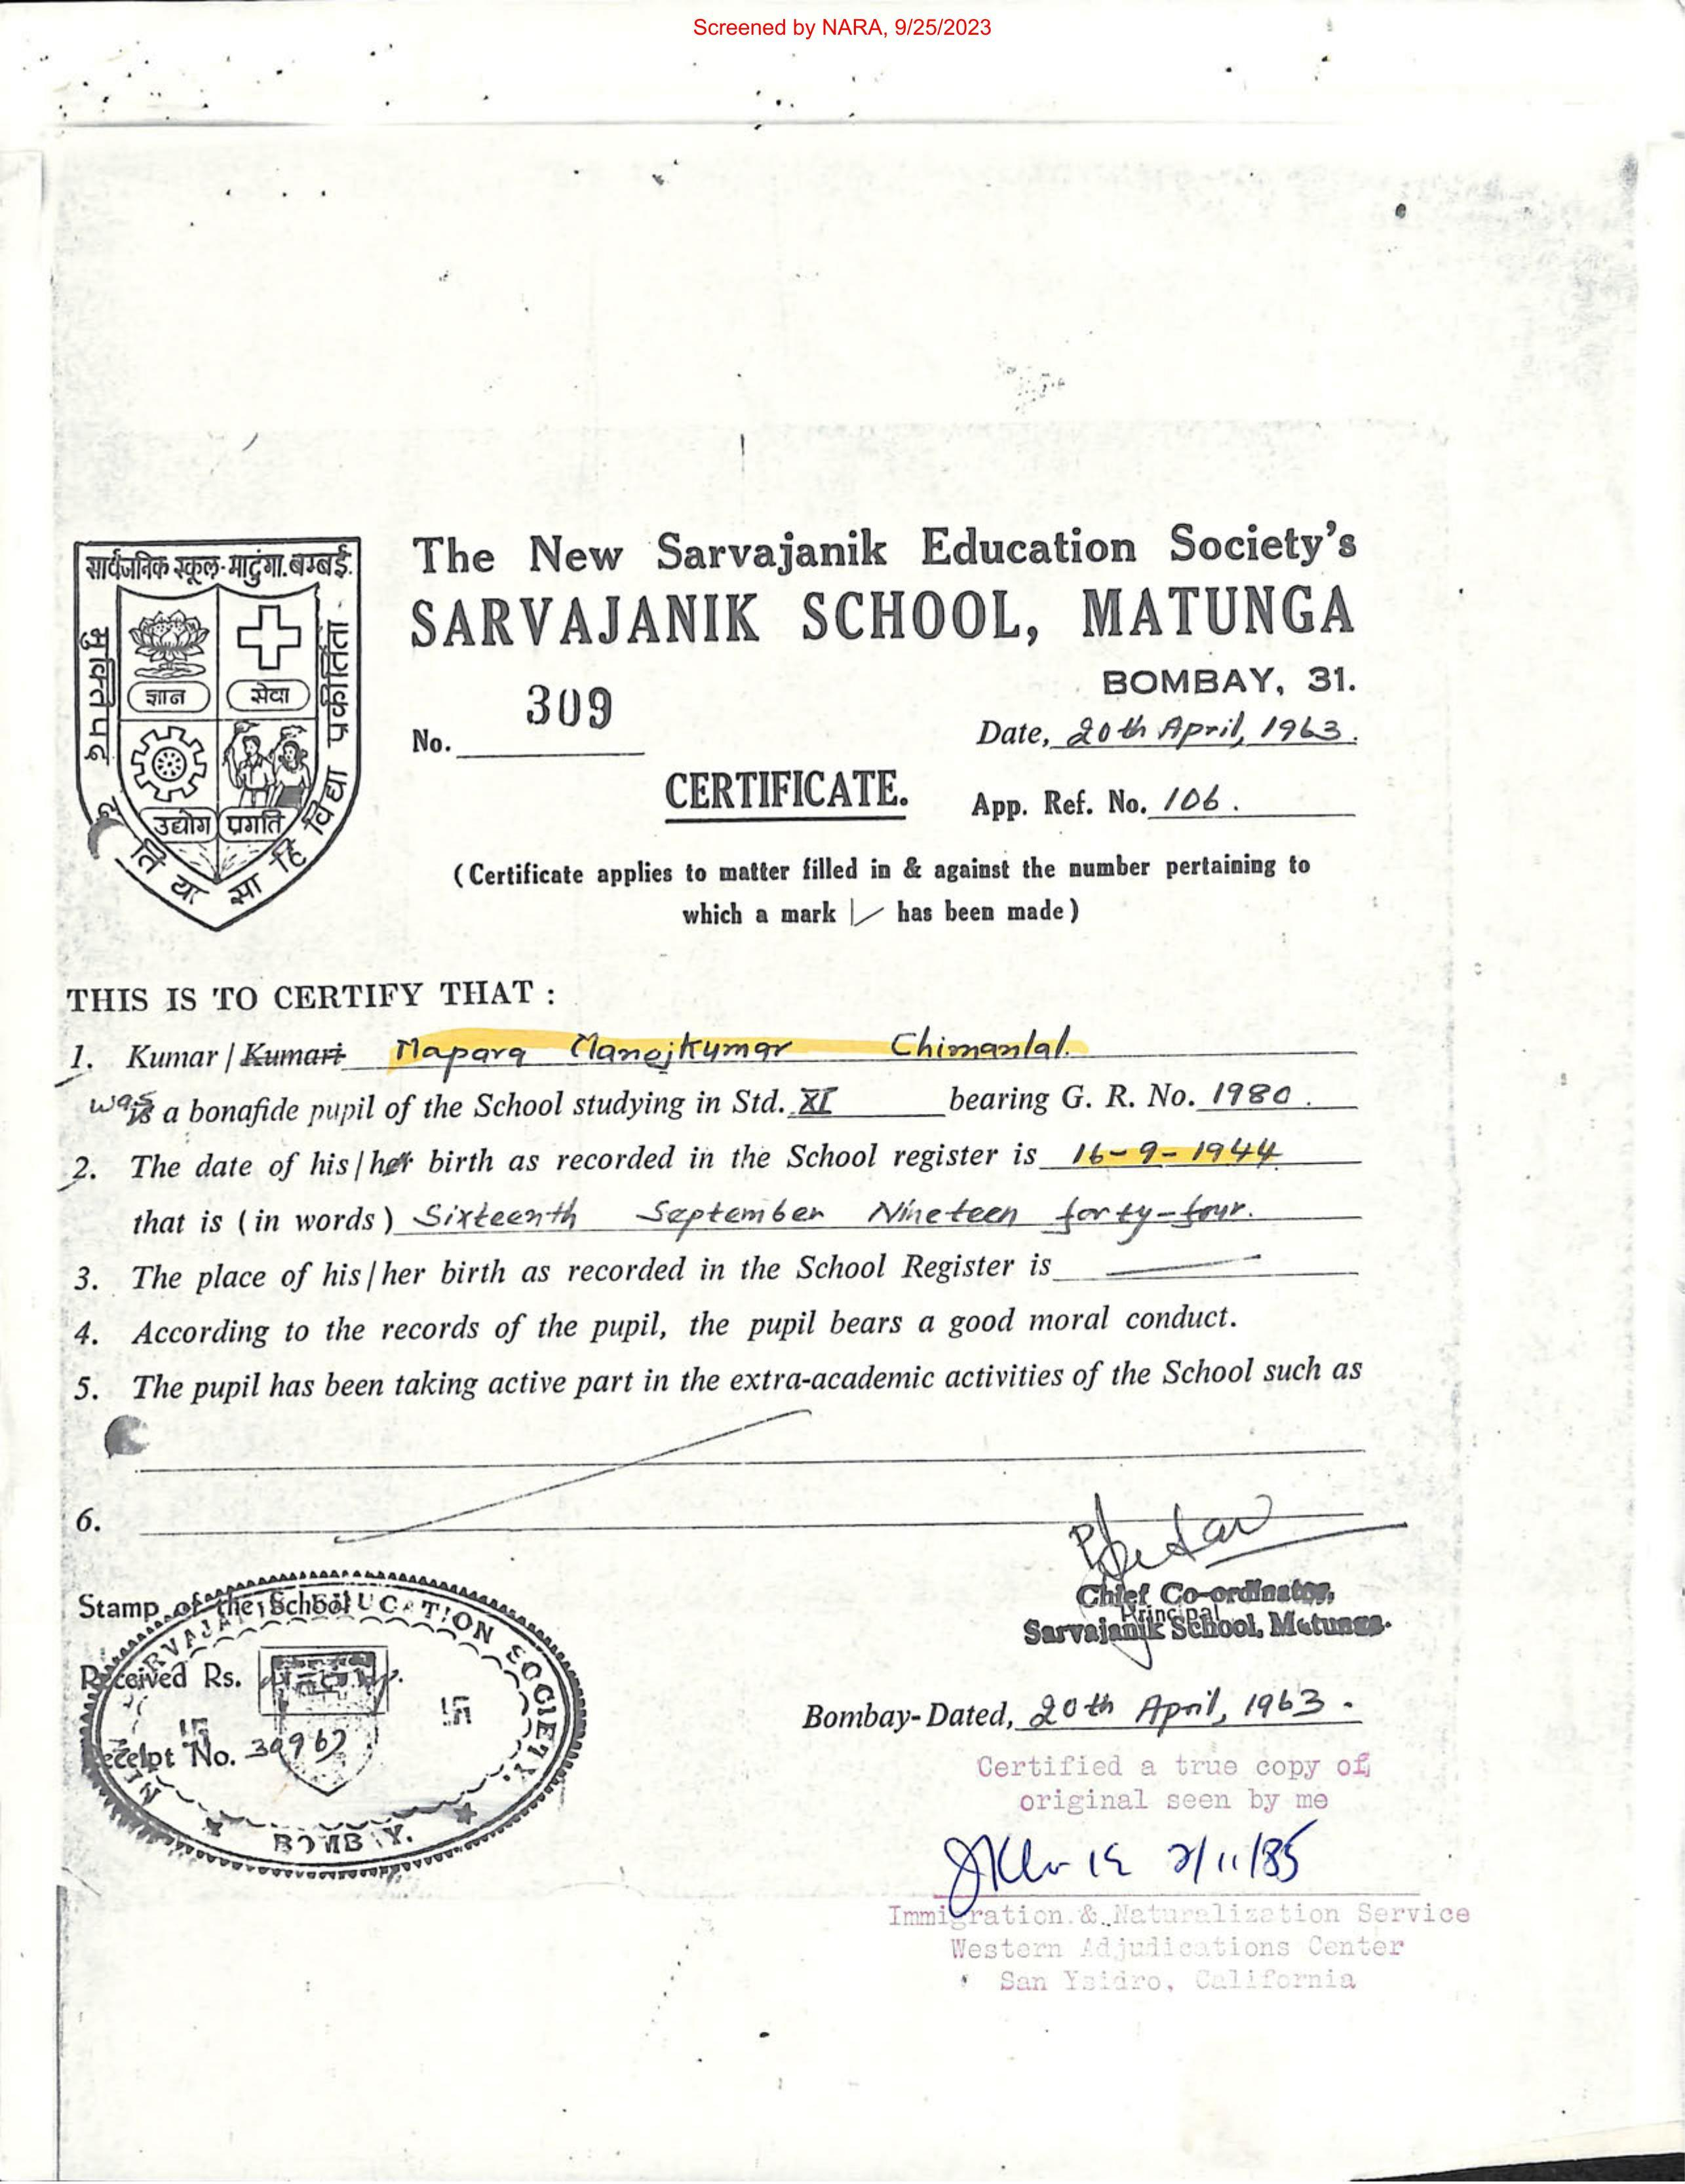 Screened by NARA, 9/25/2023
सार्वजनिक स्कूल-माटुंगा.बम्बई.
ज्ञान सेवा
उद्योग प्रगति
सा विद्या या
The New Sarvajanik Education Society's
SARVAJANIK SCHOOL, MATUNGA
BOMBAY, 31.
No. 309
Date, 20th April, 1963.
CERTIFICATE.
App. Ref. No. 106.
(Certificate applies to matter filled in & against the number pertaining to
which a mark has been made)
THIS IS TO CERTIFY THAT :
1. Kumar / Kumari Mapara Manojkumar Chimanlal.
was is a bonafide pupil of the School studying in Std. XI bearing G. R. No. 1980.
2. The date of his / her birth as recorded in the School register is 16-9-1944
that is (in words) Sixteenth September Nineteen forty-four.
3. The place of his / her birth as recorded in the School Register is
4. According to the records of the pupil, the pupil bears a good moral conduct.
5. The pupil has been taking active part in the extra-academic activities of the School such as
6.
Stamp of the School
EDUCATION SOCIETY.
Received Rs.
Receipt No.
BOMBAY.
Chief Co-ordinator,
Principal
Sarvajanik School, Matunga.
Bombay-Dated, 20th April, 1963.
Certified a true copy of
original seen by me
2/11/85
Immigration & Naturalization Service
Western Adjudications Center
San Ysidro, California